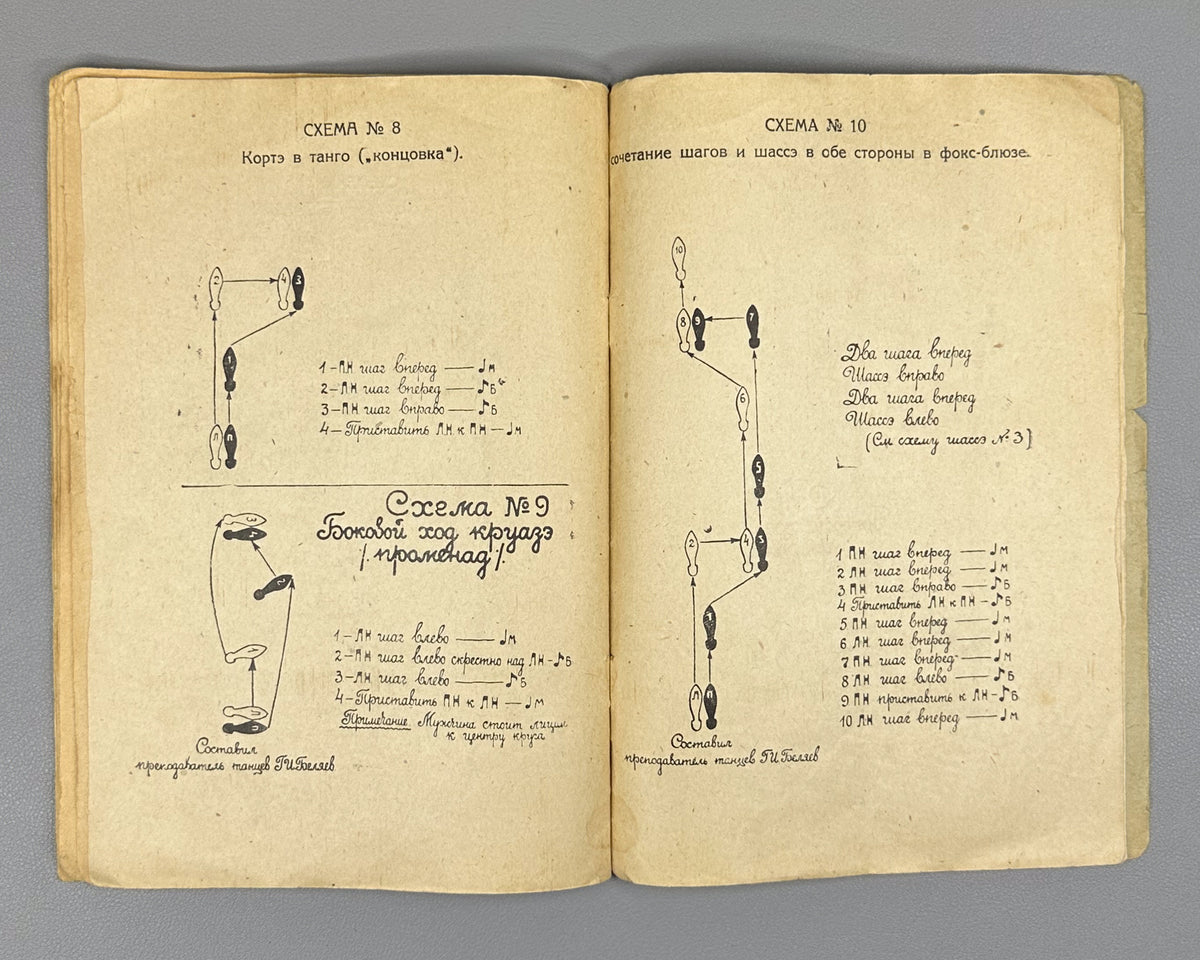 СХЕМА № 8
Кортэ в танго („концовка“).
2 4 3
1
Л П
1 – ПН шаг вперед —— ♩м
2 – ЛН шаг вперед —— ♪Б
3 – ПН шаг вправо —— ♪Б
4 – Приставить ЛН к ПН — ♩м
Схема № 9
Боковой ход круазэ
/променад/.
3
2
1
Л
П
1 – ЛН шаг влево —— ♩м
2 – ПН шаг влево скрестно над ЛН – ♪Б
3 – ЛН шаг влево —— ♪Б
4 – Приставить ПН к ЛН — ♩м
Примечание. Мужчина стоит лицом
к центру круга
Составил
преподаватель танцев Г.И.Беляев
СХЕМА № 10
сочетание шагов и шассэ в обе стороны в фокс-блюзе.
10
8 9 7
6
5
2 4 3
1
Л П
Два шага вперед
Шассэ вправо
Два шага вперед
Шассэ влево
(См схему шассэ № 3)
1 ПН шаг вперед —— ♩м
2 ЛН шаг вперед —— ♩м
3 ПН шаг вправо —— ♪Б
4 Приставить ЛН к ПН – ♪Б
5 ПН шаг вперед —— ♩м
6 ЛН шаг вперед —— ♩м
7 ПН шаг вперед —— ♩м
8 ЛН шаг влево —— ♪Б
9 ПН приставить к ЛН – ♪Б
10 ЛН шаг вперед —— ♩м
Составил
преподаватель танцев Г.И.Беляев